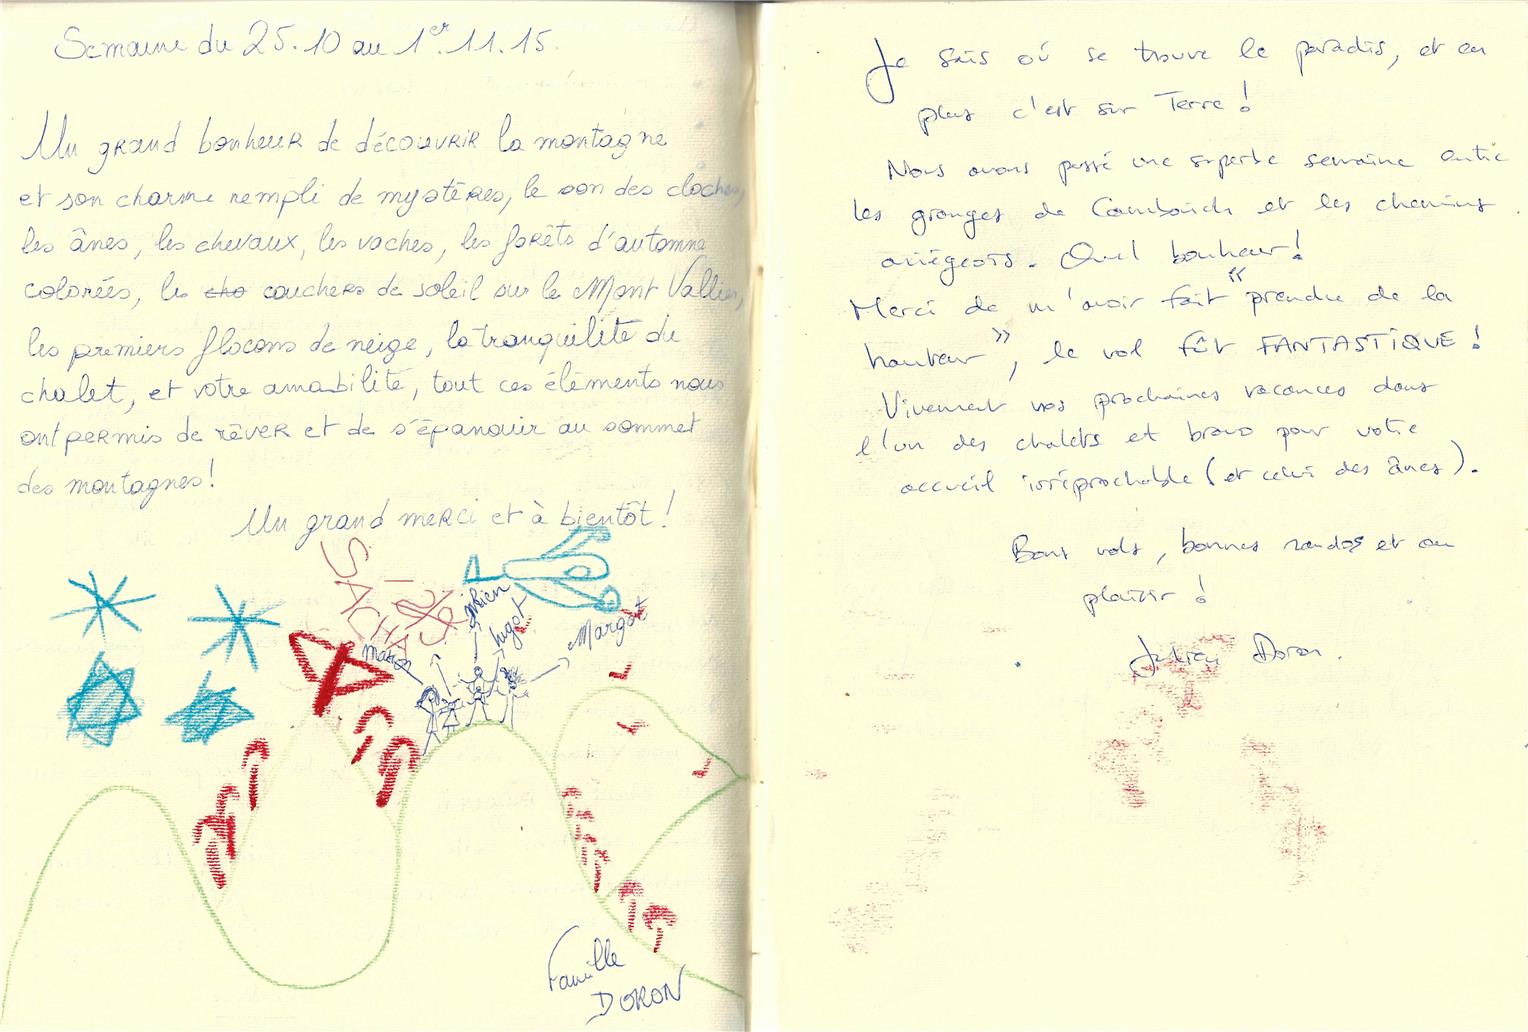 Semaine du 25.10 au 1er.11.15.
Un grand bonheur de découvrir la montagne
et son charme rempli de mystères, le son des cloches,
les ânes, les chevaux, les vaches, les forêts d'automne
colorées, les cho couchers de soleil sur le Mont Vallier,
les premiers flocons de neige, la tranquilité du
chalet, et votre amabilité, tout ces éléments nous
ont permis de rêver et de s'épanouir au sommet
des montagnes!
Un grand merci et à bientôt!
SACHA
Julien
hugot
Margot
Famille
DORON
Je sais où se trouve le paradis, et en
plus c'est sur Terre!
Nous avons passé une superbe semaine entre
les granges de Cambouich et les chemins
ariégeois. Quel bonheur!
Merci de m'avoir fait "prendre de la
hauteur", le vol fût FANTASTIQUE!
Vivement nos prochaines vacances dans
l'un des chalets et bravo pour votre
accueil irréprochable (et celui des ânes).
Bons vols, bonnes randos et au
plaisir!
Julien Doron.